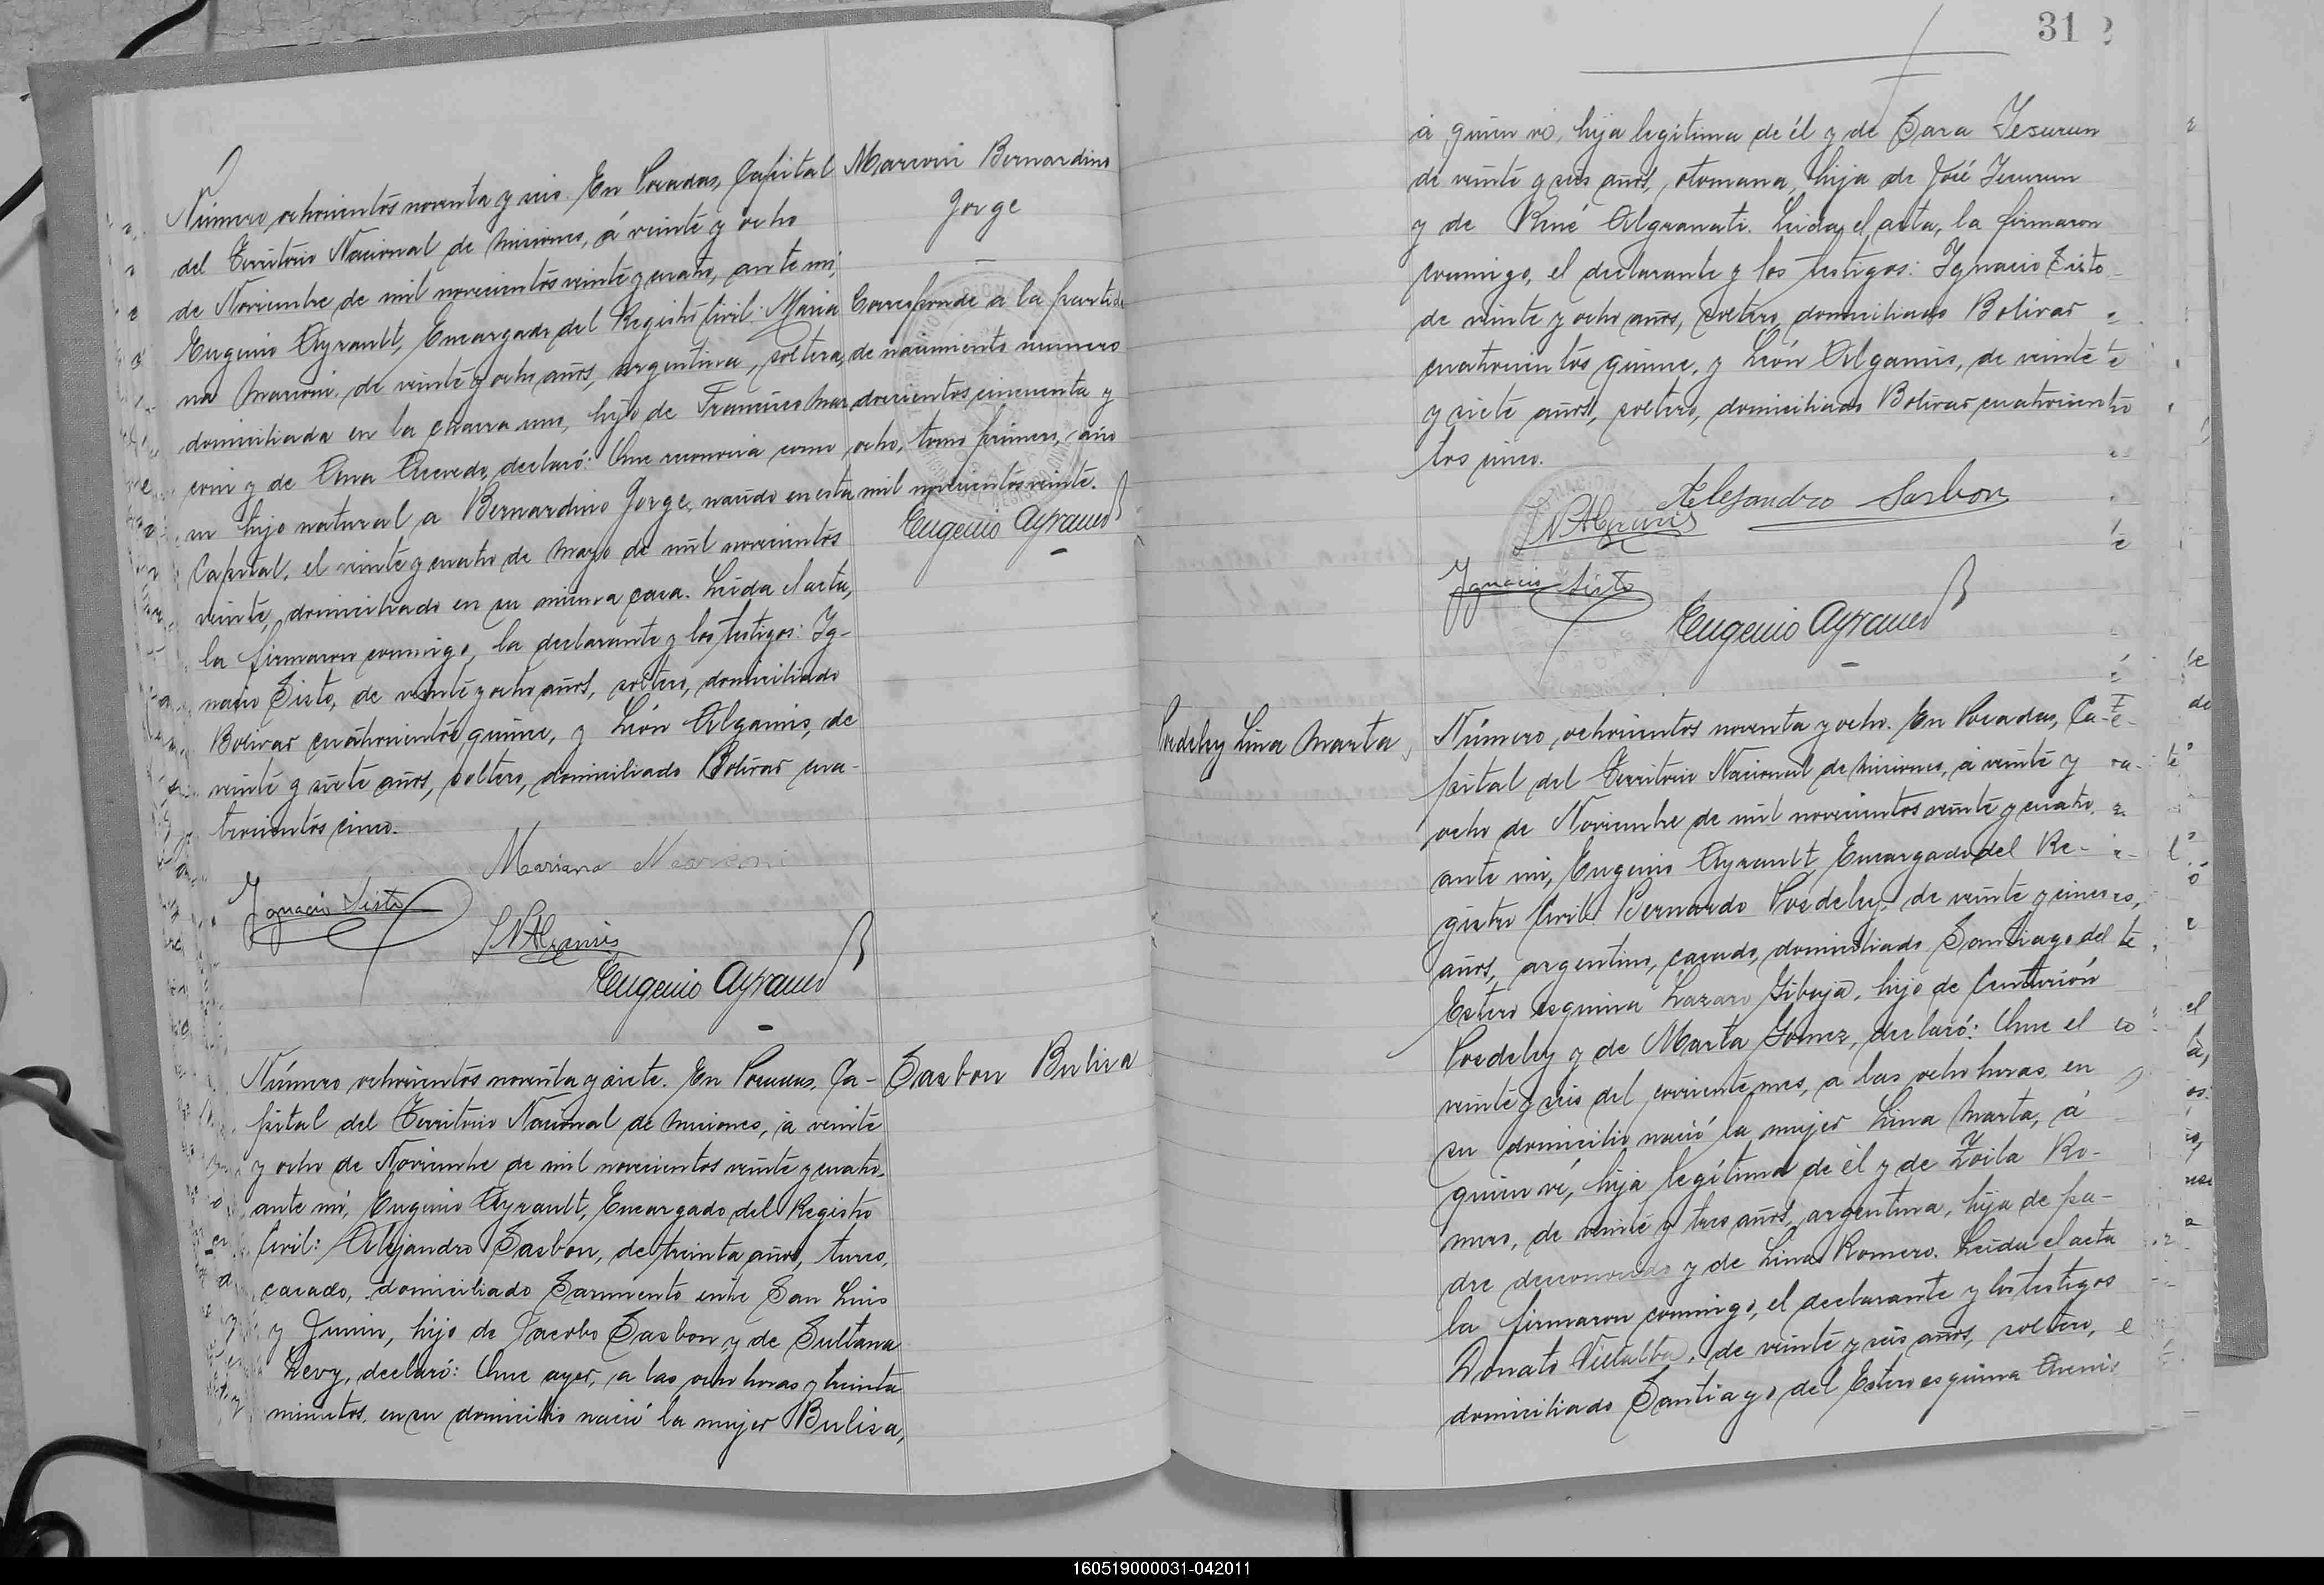 Número ochocientos noventa y seis. En Posadas, Capital
del Territorio Nacional de Misiones, á veinte y ocho
de Noviembre de mil novecientos veinte y cuatro, ante mi,
Eugenio Ayrault, Encargado del Registro Civil: Maria
na Marconi, de veinte y ocho años, argentina, soltera,
domiciliada en la chacra uno, hija de Francisco Mar
coni y de Ana Acevedo, declaró: Que reconocia como
su hijo natural a Bernardino Jorge, nacido en esta
Capital, el veinte y cuatro de Mayo de mil novecientos
veinte, domiciliado en su misma casa. Leida el acta,
la firmaron conmigo, la declarante y los testigos: Ig-
nacio Sisto, de veinte y ocho años, soltero, domiciliado
Bolivar cuatrocientos quince, y León Algamis, de
veinte y siete años, soltero, domiciliado Bolivar cua-
trocientos cinco.
Mariana Marconi
Ignacio Sisto
Eugenio Ayrault
Marconi Bernardino
Jorge
Corresponde a la partida
de nacimiento número
doscientos cincuenta y
ocho, tomo primero, año
mil novecientos veinte.
Eugenio Ayrault
Número ochocientos noventa y siete. En Posadas, Ca-
pital del Territorio Nacional de Misiones, á veinte
y ocho de Noviembre de mil novecientos veinte y cuatro,
ante mi, Eugenio Ayrault, Encargado del Registro
Civil: Alejandro Sasbon, de treinta años, turco,
casado, domiciliado Sarmiento entre San Luis
y Junin, hijo de Jacobo Sasbon y de Sultana
Levy, declaró: Que ayer, a las ocho horas y treinta
minutos, en su domicilio nació la mujer Bulisa,
Sasbon Bulisa
31
á quien vi, hija legitima de él y de Sara Jesurun
de veinte y seis años, otomana, hija de José Jesurun
y de René Algranati. Leida el acta, la firmaron
conmigo, el declarante y los testigos: Ignacio Sisto
de veinte y ocho años, soltero, domiciliado Bolivar
cuatrocientos quince, y León Algamis, de veinte
y siete años, soltero, domiciliado Bolivar cuatrocien
tos cinco.
Alejandro Sasbon
Ignacio Sisto
Eugenio Ayrault
Posdeley Lina Marta
Número ochocientos noventa y ocho. En Posadas, Ca-
pital del Territorio Nacional de Misiones, á veinte y
ocho de Noviembre de mil novecientos veinte y cuatro,
ante mi, Eugenio Ayrault, Encargado del Re-
gistro Civil: Bernardo Posdeley, de veinte y cinco
años, argentino, casado, domiciliado Santiago del
Estero esquina Lazaro Gibaja, hijo de Centurión
Posdeley y de Marta Gomez, declaró: Que el
veinte y seis del corriente mes, a las ocho horas, en
su domicilio nació la mujer Lina Marta, á
quien vi, hija legítima de él y de Zoila Ro-
mero, de veinte y tres años, argentina, hija de pa-
dre desconocido y de Lina Romero. Leida el acta
la firmaron conmigo, el declarante y los testigos
Donato Villalba, de veinte y seis años, soltero,
domiciliado Santiago del Estero esquina
160519000031-042011